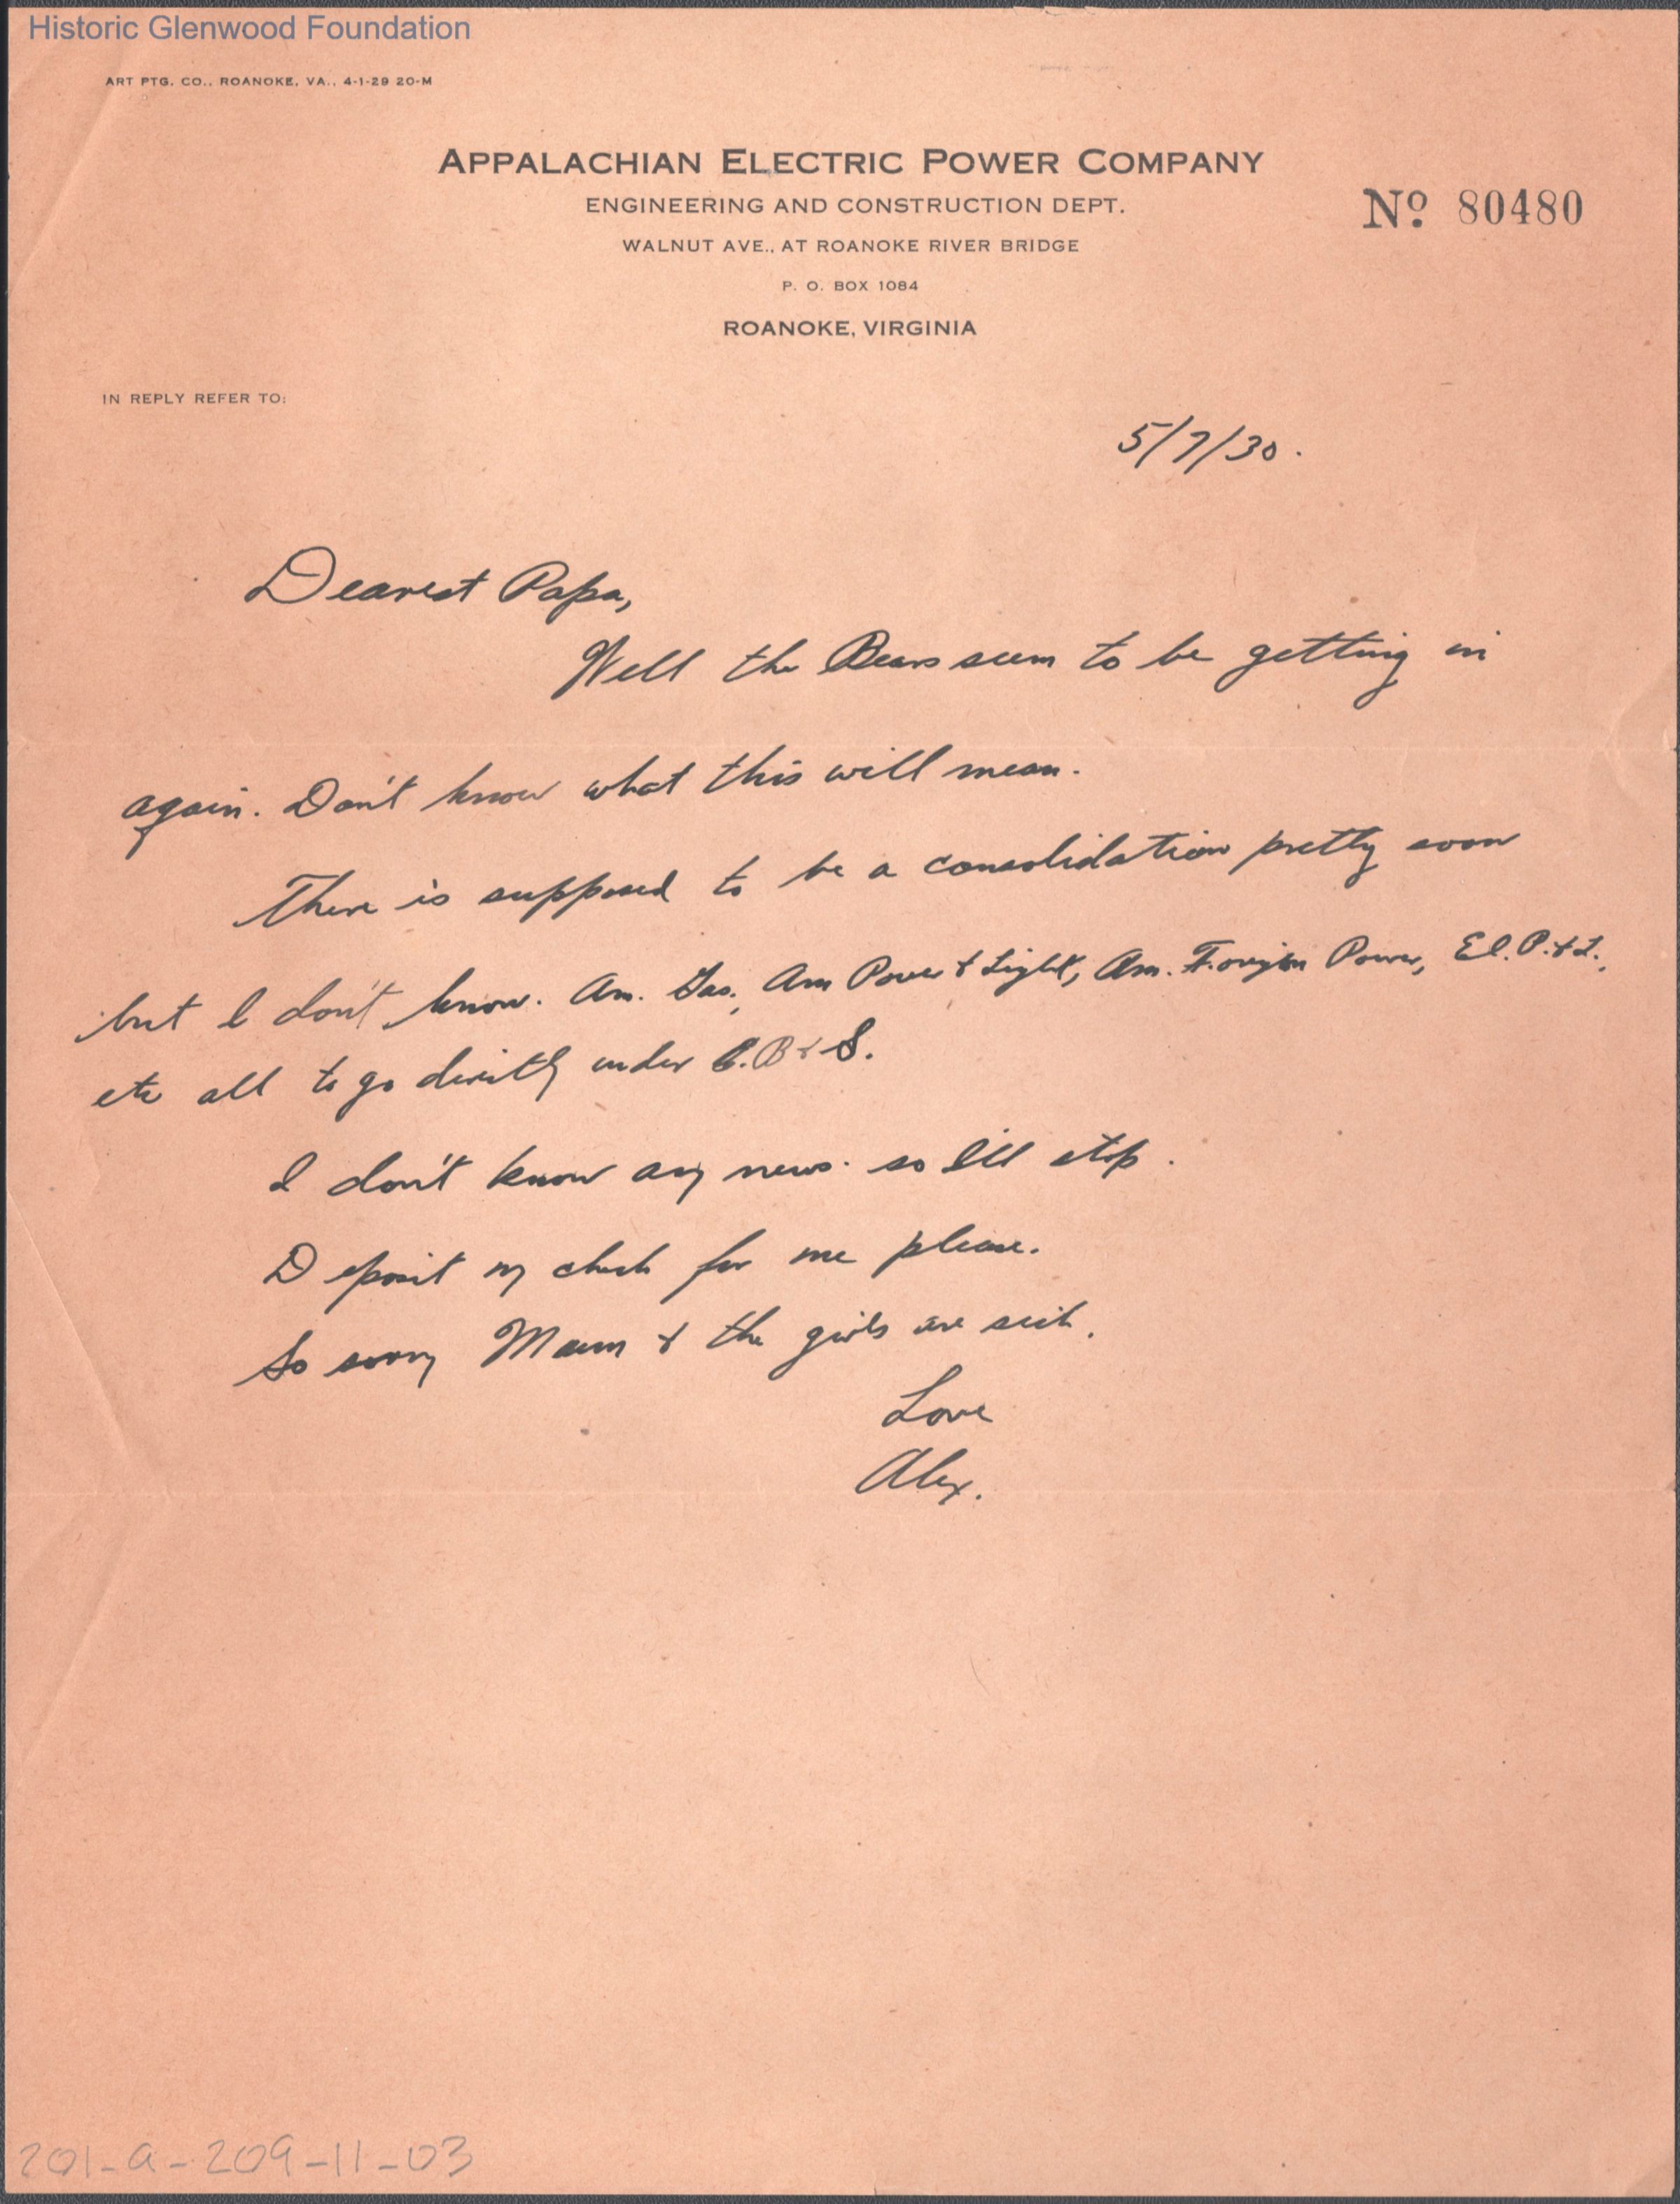 Historic Glenwood Foundation
ART PTG. CO., ROANOKE, VA., 4-1-29 20-M
APPALACHIAN ELECTRIC POWER COMPANY
ENGINEERING AND CONSTRUCTION DEPT.
Nº 80480
WALNUT AVE., AT ROANOKE RIVER BRIDGE
P. O. BOX 1084
ROANOKE, VIRGINIA
IN REPLY REFER TO:
5/7/30.
Dearest Papa,
Well the Bears seem to be getting in
again. Don't know what this will mean.
There is supposed to be a consolidation pretty soon
but I don't know. Am. Gas, Am Power & Light, Am. Foreign Power, El. P. & L.,
etc all to go directly under E. B & S.
I don't know any news. so I'll stop.
Deposit my check for me please.
So sorry Mam & the girls are sick.
Love
Alex.
201-a-209-11-03